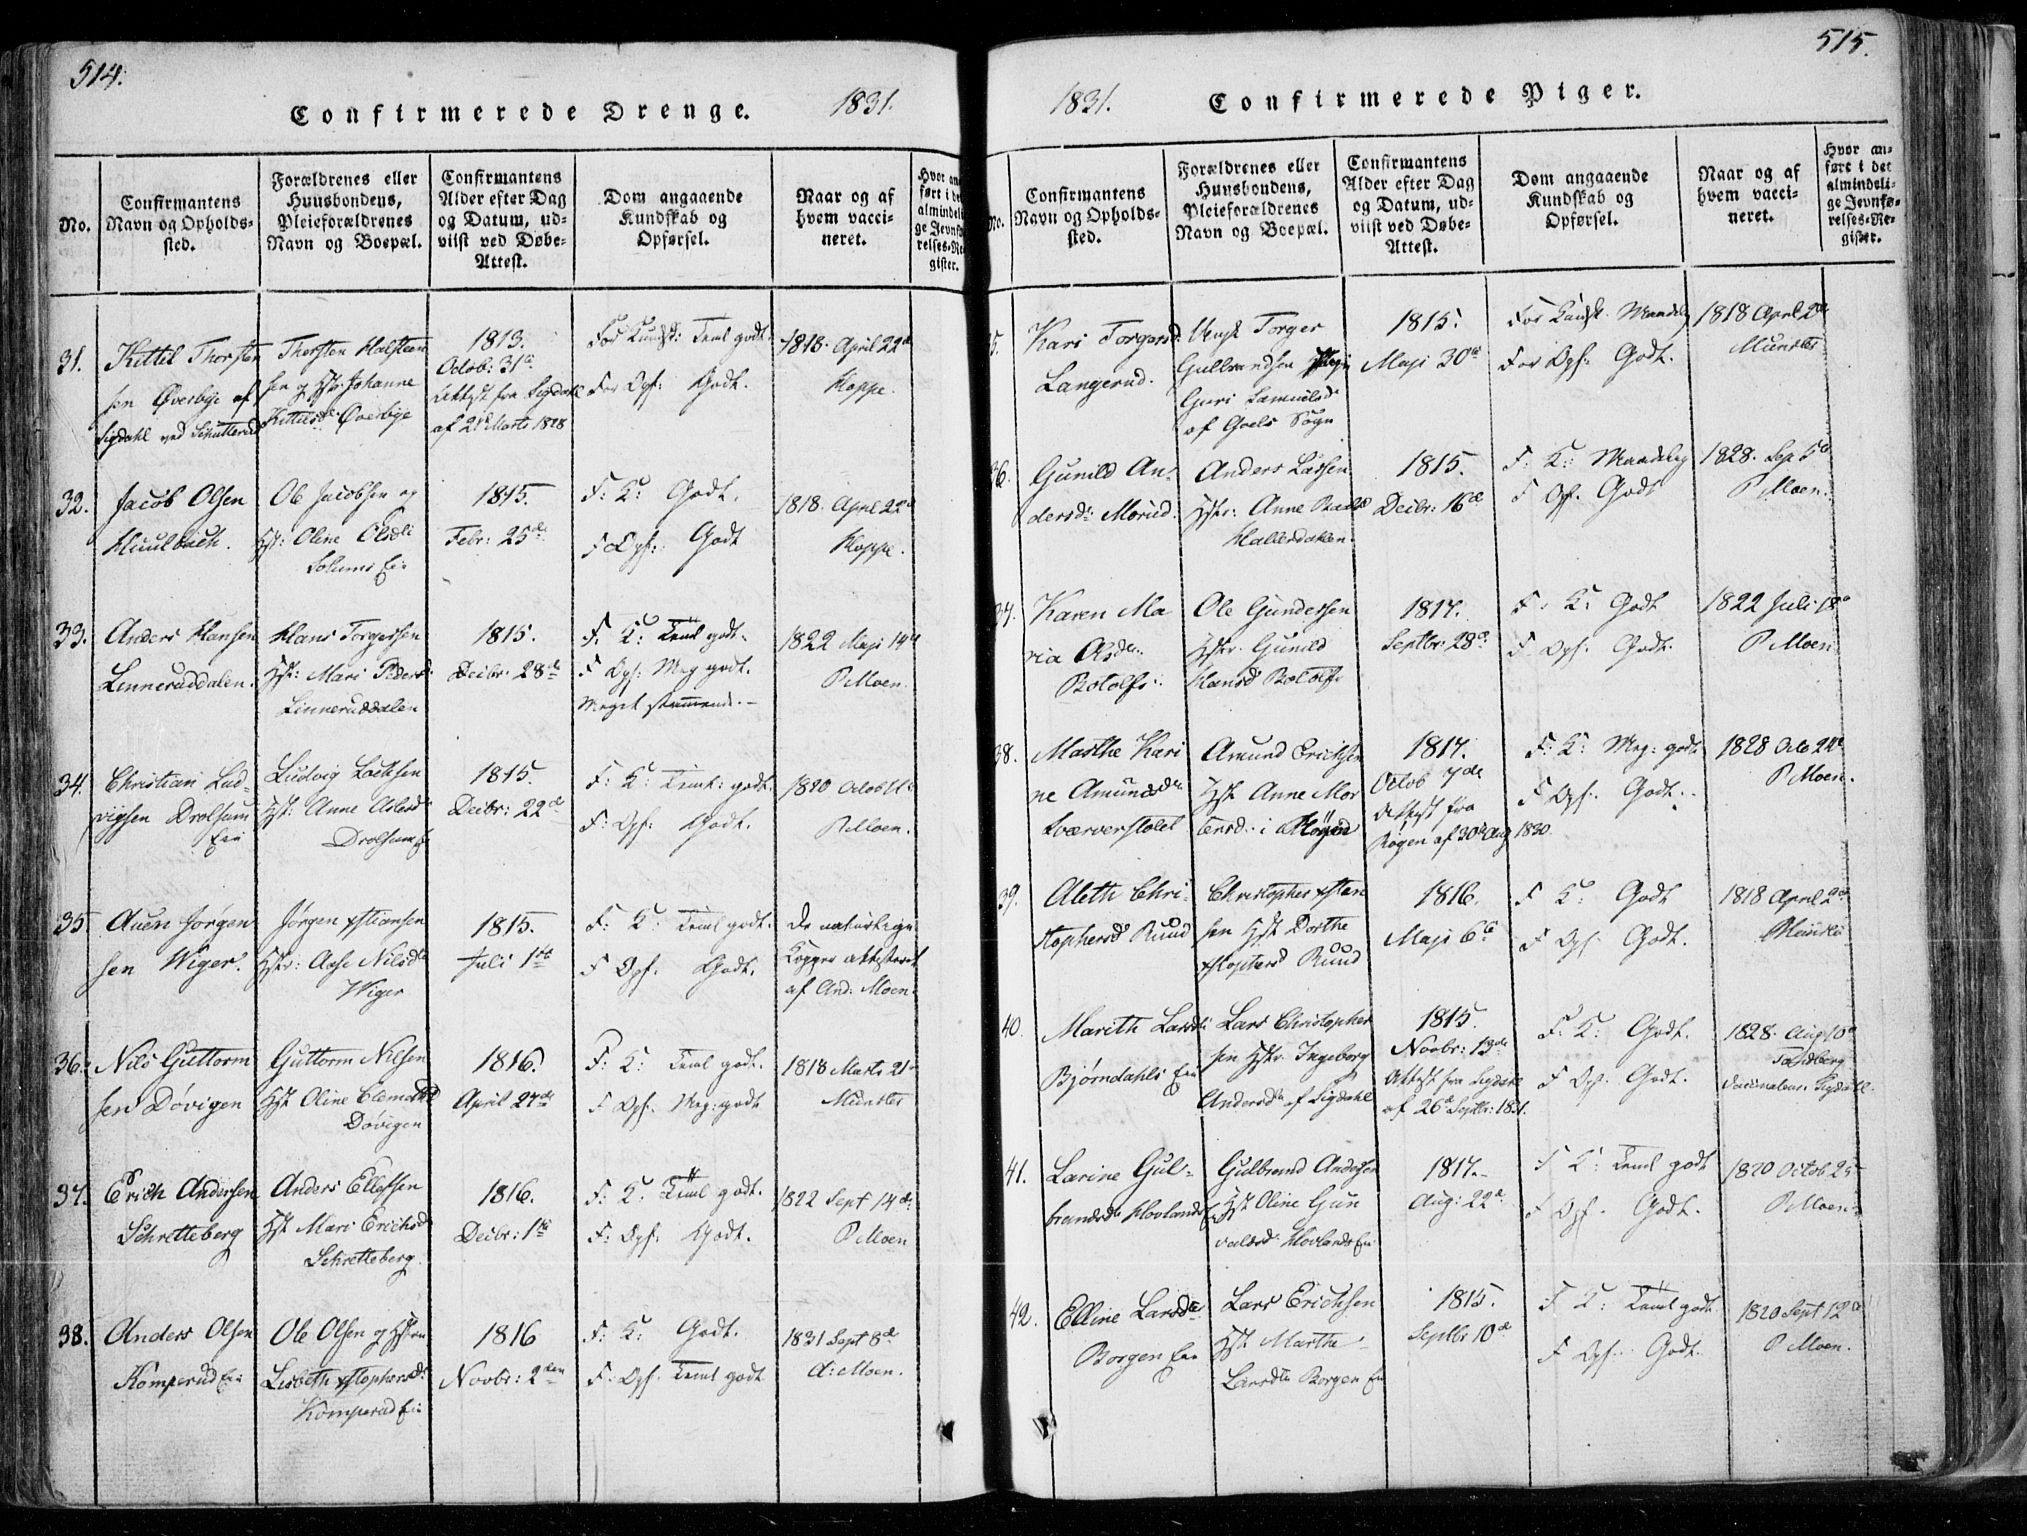 514.
Confirmerede Drenge.
1831.
No.
Confirmantens
Navn og Opholds-
sted.
Forældrenes eller
Huusbondens,
Pleieforældrenes
Navn og Boepæl.
Confirmantens
Alder efter Dag
og Datum, ud-
viist ved Døbe-
Attest.
Dom angaaende
Kundskab og
Opførsel.
Naar og af
hvem vacci-
neret.
Hvor an-
ført i de
almindeli
ge Jevnfø
relses-Re
gister.
31.
Kittil Thorsten
sen Øverbye af
Sigdahl ved Schutterud
Thorsten Halsteen
sen og Hstr Johanne
Kittilsd Øverbye
1813.
Octob: 31
Attest fra Sigdahl
af 21 Marts 1828
For Kundsk: Teml godt
For Opf: Godt.
1818. April 22d
Hoppe.
32.
Jacob Olsen
Huulbach.
Ole Jacobsen og
Hst: Oline Olsd
Solums Eie
1815.
Febr: 25de
F: K: Godt.
F Opf: Godt
1818. April 22d
Hoppe.
33.
Anders Hansen
Linneruddalen.
Hans Torgersen
Hst: Mari Peders
Linneruddalen
1815.
Decbr: 28de
F. K: Teml godt.
F Opf: Meg godt.
Meget stammende.
1822 Maji 14d
P Moen.
34.
Christian Lud-
vigsen Drolsum
Eie
Ludvig
Hst: Anne
Drolsum Eie
1815.
Decbr: 22de
F: K: Teml: godt.
F: Opf: Godt.
1820 Octob 11
P Moen.
35
Auen Jørgen
sen Wiger.
Jørgen Xstiansen
Hstr: Aase Nilsd
Wiger
1815.
Juli 1ste
F: K: Teml godt.
F Opf. Godt.
De naturlige
Kopper attesteret
af And: Moen.
36.
Nils Guttorm
sen Døvigen
Guttorm Nilsen
Hst Oline
Døvigen
1816.
April 27de
F: K: Teml godt.
F Opf. Meg: godt
1818 Marts 21
Munster
37.
Erich Andersen
Schretteberg
Anders Ellefsen
Hst Mari Erichsd
Schretteberg.
1816.
Decbr: 1ste
F: K. Teml godt.
F: Opf: Godt.
1822 Sept 14de
P Moen
38.
Anders Olsen
Komperud Eie
Ole Olsen og Hstru
Lisbeth Xstophersd
Komperud Eie
1816
Novbr: 2den
F: K: Godt.
F: Opf. Teml godt
1831 Sept 8de
A: Moen.
515.
1831.
Confirmerede Piger.
No.
Confirmantens
Navn og Opholds-
sted.
Forældrenes eller
Huusbondens,
Pleieforældrenes
Navn og Boepæl.
Confirmantens
Alder efter Dag
og Datum, ud-
viist ved Døbe-
Attest.
Dom angaaende
Kundskab og
Opførsel.
Naar og af
hvem vacci-
neret.
Hvor an-
ført i det
almindeli-
ge Jevnfø-
relses-Re-
gister.
5.
Kari Torgersd
Langerud.
Torger
Gulbrandsen
Guri Samuelsd
af Goels Sogn
1815.
Maji 30te
For Kundsk. Maadelig
For Opf: Godt.
1818 April 2
Munster
36.
Gunild An-
dersd Morud.
Anders Larsen
Hstr: Anne
Hallersdalen
1815.
Decbr: 16de
F: K: Maadelig
F Opf. Godt
1828. Sep 5
P Moen.
37.
Karen Ma
ria Olsd
Botolfs
Ole Gundersen
Hstr. Gunild
Hansd Botolfs
1817.
Septbr: 28de
F. K: Godt
F Opf. Godt.
1822 Juli 18
P Moen
38.
Marthe Kari
ne Amundsd
Tværverstolet
Amund Erichsen
Hst Anne Mor
tensd. i
1817.
Octob 7de
Attest fra
Røgen af 30 Aug 1830.
F: K: Meg: godt
F Opf. Godt.
1828 Octo 24
P Moen.
39.
Aleth Chri-
stophersd Ruud
Christopher Xstian
sen Hst Dorthe
Xstophersd Ruud
1816.
Maji 6te
F K: Godt
F Opf. Godt.
1818 April 2
40.
Marith Larsd
Bjørndahls Eie
Lars Christopher
sen Hstr. Ingeborg
Andersd af Sigdahl
1815.
Novbr: 13de
Attest fra Sigdahl
af 26 Septbr: 1831.
F: K: Godt.
F Opf. Godt.
1828. Aug 10
Sandberg
Sigdahl.
41.
Larine Gul-
brandsd Hovlands Eie
Gulbrand Andersen
Hst Oline Gun
valdsd Hovlands Eie
1817.
Aug: 22d
F K: Teml godt
F Opf. Godt.
1820 Octob 25
P Moen.
42.
Elline Larsd
Borgen Eie
Lars Erichsen
Hst Marthe
Larsd Borgen Eie
1815.
Septbr 10de
F K: Teml godt
F Opf. Godt.
1820 Sept 12
P Moen.